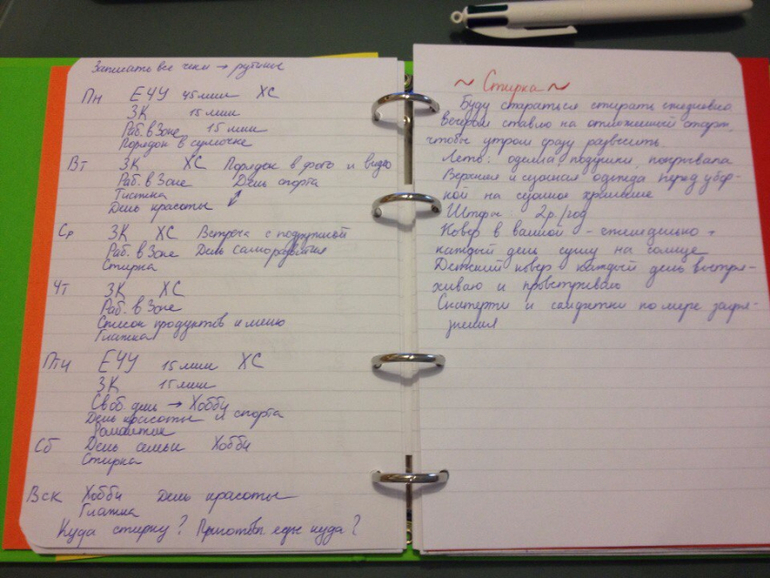 Записать все чеки → рутины
Пн ЕЧУ 45 мин ХС
ЗК 15 мин
Раб. в Зоне 15 мин
Порядок в сумочке
Вт ЗК ХС Порядок в фото и видео
Раб. в Зоне День спорта
Глажка
День красоты
Ср ЗК ХС Встреча с подружкой
Раб. в Зоне День саморазвития
Стирка
Чт ЗК ХС
Раб. в Зоне
Список продуктов и меню
Глажка
Птн ЕЧУ 15 мин ХС
ЗК 15 мин
Своб. день → Хобби
День красоты и спорта
Сб День семьи Хобби
Стирка
Вск Хобби День красоты
Глажка
Куда стирку? Приготов. еды куда?
~ Стирка ~
Буду стараться стирать ежедневно,
вечером ставлю на отложенный старт,
чтобы утром сразу развесить.
Лето: одеяла подушки, покрывала
Верхняя и сезонная одежда перед убор-
кой на сезонное хранение
Шторы 2р./год
Ковер в ванной - еженедельно +
каждый день сушу на солнце
Детский ковер каждый день вытря-
хиваю и проветриваю
Скатерти и салфетки по мере загря-
знения